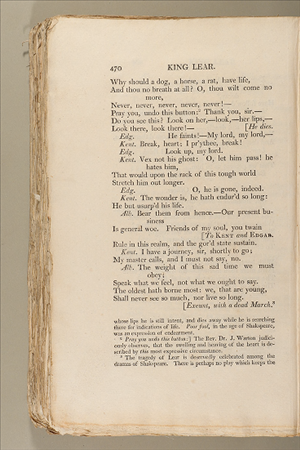 470 KING LEAR.
Why should a dog, a horse, a rat, have life,
And thou no breath at all? O, thou wilt come no
more,
Never, never, never, never, never!—
Pray you, undo this button:⁶ Thank you, sir.—
Do you see this? Look on her,—look,—her lips,—
Look there, look there!— [He dies.
Edg. He faints!—My lord, my lord,—
Kent. Break, heart; I pr'ythee, break!
Edg. Look up, my lord.
Kent. Vex not his ghost: O, let him pass! he
hates him,
That would upon the rack of this tough world
Stretch him out longer.
Edg. O, he is gone, indeed.
Kent. The wonder is, he hath endur'd so long:
He but usurp'd his life.
Alb. Bear them from hence.—Our present bu-
siness
Is general woe. Friends of my soul, you twain
[To KENT and EDGAR.
Rule in this realm, and the gor'd state sustain.
Kent. I have a journey, sir, shortly to go;
My master calls, and I must not say, no.
Alb. The weight of this sad time we must
obey;
Speak what we feel, not what we ought to say.
The oldest hath borne most: we, that are young,
Shall never see so much, nor live so long.
[Exeunt, with a dead March.⁸
whose lips he is still intent, and dies away while he is searching
there for indications of life. Poor fool, in the age of Shakspeare,
was an expression of endearment.
⁶ Pray you undo this button:] The Rev. Dr. J. Warton judici-
ously observes, that the swelling and heaving of the heart is de-
scribed by this most expressive circumstance.
⁸ The tragedy of Lear is deservedly celebrated among the
dramas of Shakspeare. There is perhaps no play which keeps the